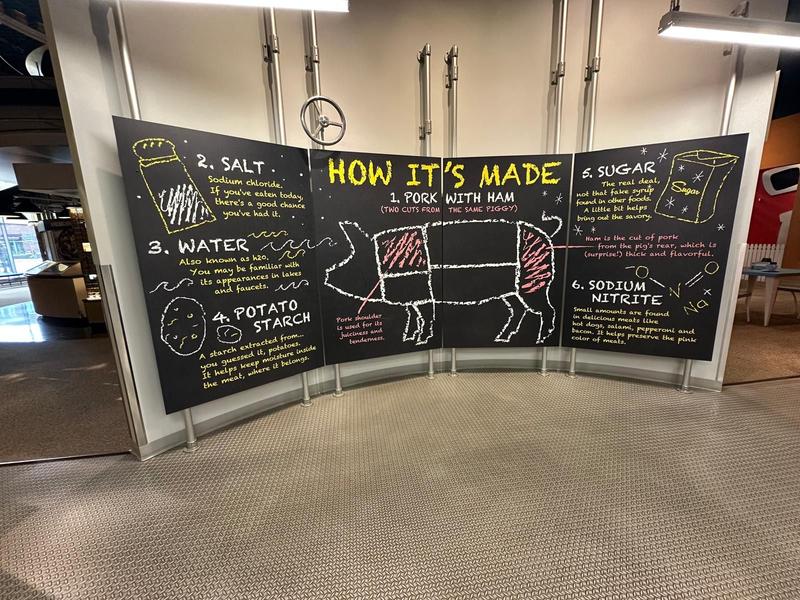 HOW IT'S MADE
1. PORK WITH HAM
(TWO CUTS FROM THE SAME PIGGY)
Pork shoulder
is used for its
juiciness and
tenderness.
Ham is the cut of pork
from the pig's rear, which is
(surprise!) thick and flavorful.
2. SALT
Sodium chloride.
If you've eaten today,
there's a good chance
you've had it.
3. WATER
Also known as h2o.
You may be familiar with
its appearances in lakes
and faucets.
4. POTATO
STARCH
A starch extracted from...
you guessed it, potatoes.
It helps keep moisture inside
the meat, where it belongs.
5. SUGAR
The real deal,
not that fake syrup
found in other foods.
A little bit helps
bring out the savory.
Sugar
6. SODIUM
NITRITE
Small amounts are found
in delicious meats like
hot dogs, salami, pepperoni and
bacon. It helps preserve the pink
color of meats.
O
O
N
Na